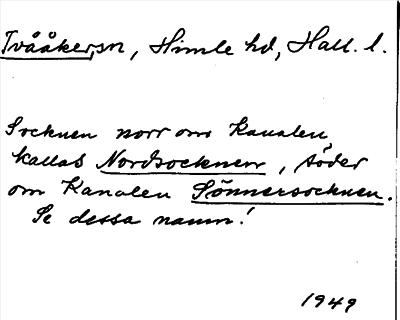 Tvååker, sn, Himle hd, Hall. l.
Socknen norr om kanalen
kallas Nordsocknen, söder
om Kanalen Sönnersocknen.
Se dessa namn!
1949